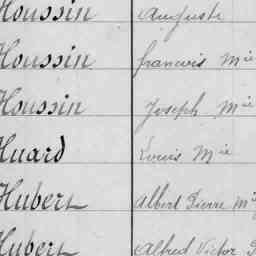 Houssin Auguste
Houssin francois Mie
Houssin Joseph Mie
Huard Louis Mie
Hubert Albert Pierre
Hubert Alfred Victor